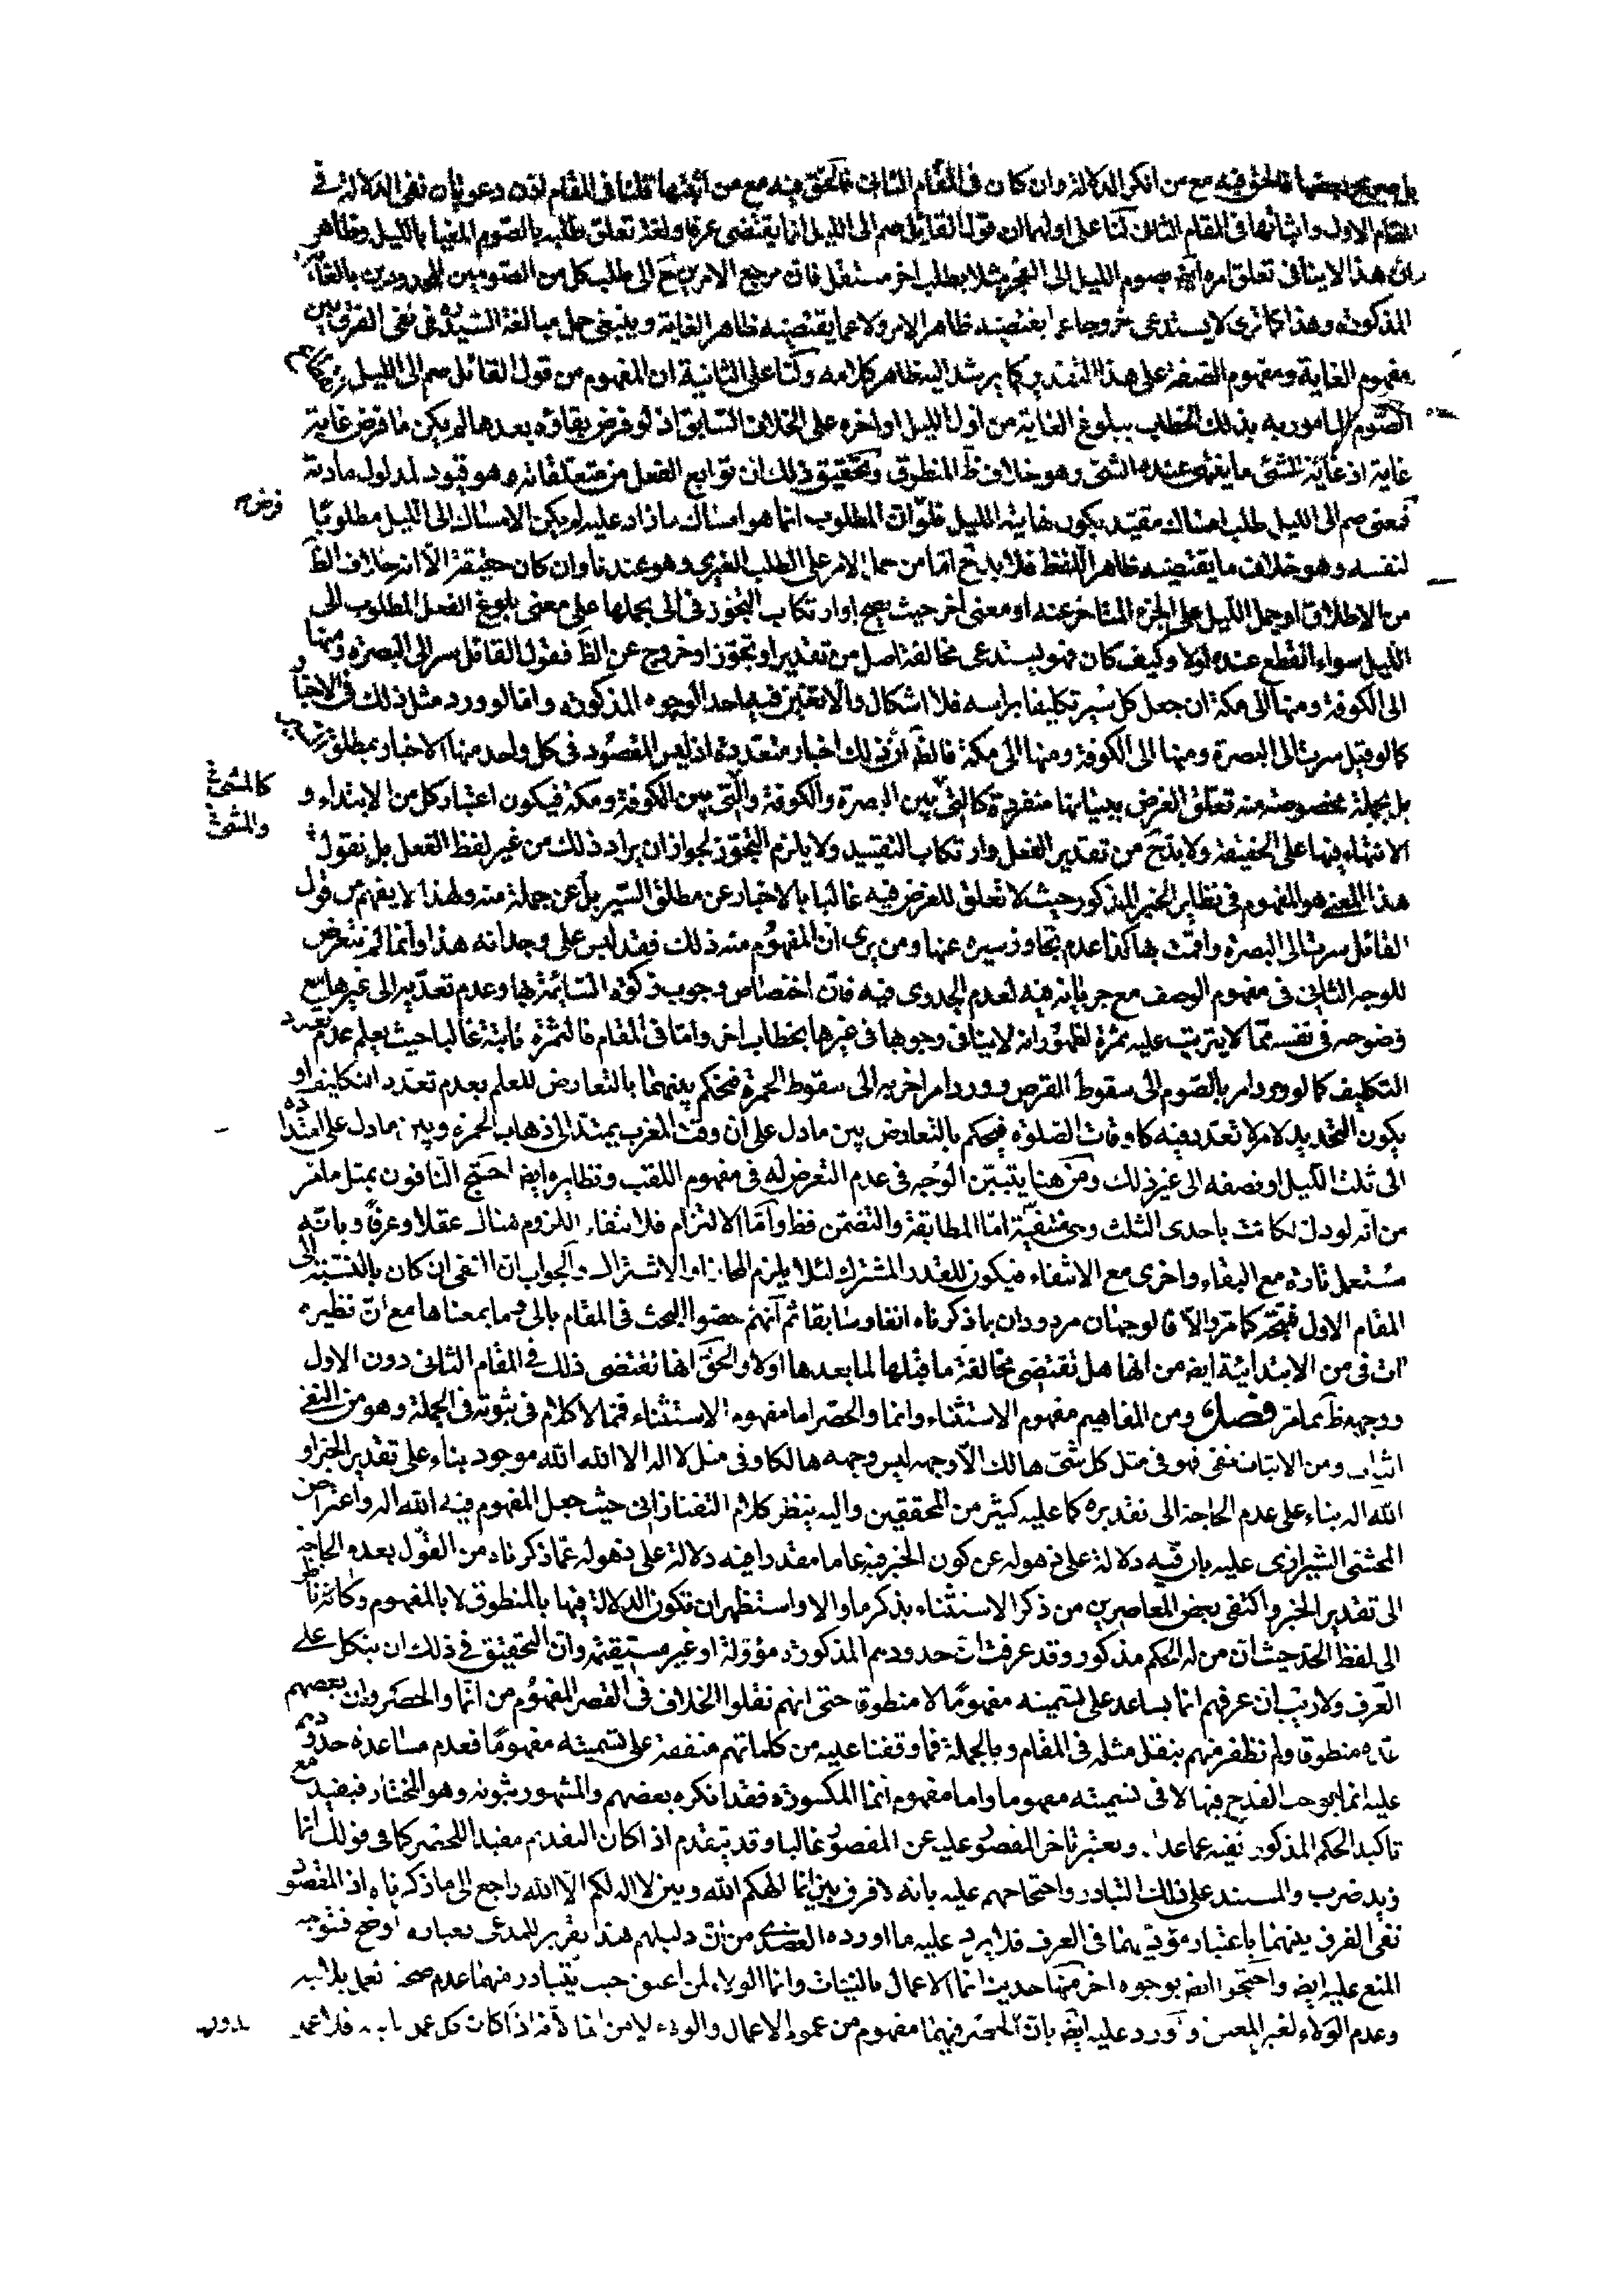 بل صريح بعضها فالحق فيه مع من انكر الدلالة وان كان في المقام الثاني فالحق فيه مع من اثبتها فلنا في المقام اذن دعويان نفي الدلالة في
المقام الاول واثباتها في المقام الثاني لنا على اولهما ان قول القائل صم الى الليل انما يقتضى عرفا ولغة تعلق طلبه بالصوم المغيا بالليل وظاهر
ان هذا لا ينافى تعلق امره ايض بصوم الليل الى الفجر مثلا بطلب اخر مستقل فان مرجع الامرين ح الى طلب كل من الصومين المحدودين بالغاية
المذكورة وهذا كما ترى لا يستدعى خروجا عما يقتضيه ظاهر الامر ولا عما يقتضيه ظاهر الغاية وينبغى حمل مبالغة السيد ره في نفى الفرق بين
مفهوم الغاية ومفهوم الصفة على هذا التقدير كما يرشد اليه ظاهر كلامه ولنا على الثانية ان المفهوم من قول القائل صم الى الليل
الصوم المامور به بذلك الخطاب ببلوغ الغاية من اول الليل او اخره على الخلاف السابق اذ لو فرض بقاؤه بعدها لم يكن ما فرض غاية
غاية اذ غاية الشئ ما ينتهى عنده الشئ وهو خلاف ظ المنطوق وتحقيق ذلك ان توابع الفعل من متعلقاته وهو قيود لمدلول مادته
فمعنى صم الى الليل طلب امساك مقيد بكون نهايته الليل فلو ان المطلوب انما هو امساك ما زاد عليه لم يكن الامساك الى الليل مطلوبا
فرض
لنفسه وهو خلاف ما يقتضيه ظاهر اللفظ فلا بد ح اما من حمل الامر على الطلب الغيرى وهو عندنا وان كان حقيقة الا انه خلاف الظ
من الاطلاق او حمل الليل على الجزء المتاخر عنه او معنى اخر حيث يصح او ارتكاب التجوز في الى بحملها على معنى بلوغ الفعل المطلوب الى
الليل سواء انقطع عنده اولا وكيف كان فهو يستدعى مخالفة اصل من تقدير او تجوز او خروج عن الظ فقول القائل سر الى البصرة ومنها
الى الكوفة ومنها الى مكة ان جعل كل سير تكليفا براسه فلا اشكال والا تعين فيه احد الوجوه المذكورة واما لو ورد مثل ذلك في الاخبار
كما لو قيل سرت الى البصرة ومنها الى الكوفة ومنها الى مكة فالظ ان ذلك اخبار متعددة اذ ليس المقصود في كل واحد منها الاخبار بمطلق
بل بجملة مخصوصة منه تعلق الغرض ببيانها منفردة كالتى بين البصرة والكوفة والتى بين الكوفة ومكة فيكون اعتبار كل من الابتداء و
الانتهاء فيها على الحقيقة ولا بد ح من تقدير الفعل وارتكاب التقييد ولا يلزم التجوز لجواز ان يراد ذلك من غير لفظ الفعل بل نقول
هذا المعنى هو المفهوم في نظاير الخبر المذكور حيث لا تعلق للغرض فيه غالبا بالاخبار عن مطلق السير بل عن جملة منه ولهذا لا يفهم من قول
القائل سرت الى البصرة واقمت بها كذا عدم تجاوز سيره عنها ومن يرى ان المفهوم منه ذلك فقد لبس على وجدانه هذا وانما لم نتعرض
للوجه الثانى في مفهوم الوصف مع جريانه فيه لعدم الجدوى فيه فان اختصاص وجوب زكوة السائمة بها وعدم تعديه الى غيرها مع
وضوحه في نفسه مما لا يترتب عليه ثمرة لظهور انه لا ينافى وجوبها في غيرها بخطاب اخر واما في المقام فالثمرة ثابتة غالبا حيث يعلم عدم تعدد
التكليف كما لو ورد امر بالصوم الى سقوط القرص وورد امر اخر به الى سقوط الحمرة فنحكم بينهما بالتعارض للعلم بعدم تعدد التكليف او
يكون التحديد لامر لا تعدد فيه كاوقات الصلوة فيحكم بالتعارض بين ما دل على ان وقت المغرب يمتد الى ذهاب الحمرة وبين ما دل على امتداده
الى ثلث الليل او نصفه الى غير ذلك ومن هنا يتبين الوجه في عدم التعرض له في مفهوم اللقب ونظايره ايض احتج النافون بمثل ما مر
من انه لو دل لكانت باحدى الثلث وهى منتفية اما المطابقة والتضمن فظ واما الالتزام فلانتفاء اللزوم هناك عقلا وعرفا وبانه
مستعمل تارة مع البقاء واخرى مع الانتفاء فيكون للقدر المشترك لئلا يلزم المجاز او الاشتراك والجواب ان النفى ان كان بالنسبة الى
المقام الاول فمتجه كما مر والا فالوجهان مردودان بما ذكرناه انفا وسابقا ثم انهم خصوا البحث في المقام بالى وما بمعناها مع ان نظيره
ات في من الابتدائية ايض من انها هل تقتضى مخالفة ما قبلها لما بعدها اولا والحق انها تقتضى ذلك في المقام الثانى دون الاول
ووجهه ظ مما مر فصل ومن المفاهيم مفهوم الاستثناء وانما والحصر اما مفهوم الاستثناء فمما لا كلام في ثبوته في الجملة وهو من النفى
اثبات ومن الاثبات نفى فهو في مثل كل شئ هالك الا وجهه ليس وجهه هالكا وفى مثل لا اله الا الله الله موجود بناء على تقدير الخبر او
الله اله بناء على عدم الحاجة الى تقديره كما عليه كثير من المحققين واليه ينظر كلام التفتازانى حيث جعل المفهوم فيه الله اله واعتراض
المحشى الشيرازى عليه بان فيه دلالة على ذهوله عن كون الخبر فيه عاما مقدرا فيه دلالة على ذهوله عما ذكرناه من القول بعدم الحاجة
الى تقدير الخبر واكتفى بعض المعاصرين من ذكر الاستثناء بذكر ما والا واستظهر ان تكون الدلالة فيها بالمنطوق لا بالمفهوم وكانه ناظر
الى لفظ الحد حيث ان من له الحكم مذكور وقد عرفت ان حدودهم المذكورة مؤولة او غير مستقيمة وان التحقيق في ذلك ان يتكل على
العرف ولا ريب ان عرفهم انما يساعد على تسميته مفهوما لا منطوقا حتى انهم نقلوا الخلاف في القصر المفهوم من انما والحصر وان بعضهم
عده منطوقا ولم نظفر منهم بنقل مثله في المقام وبالجملة فما وقفنا عليه من كلماتهم متفقة على تسميته مفهوما فعدم مساعدة حدودهم
عليه انما يوجب القدح فيها لا في تسميته مفهوما واما مفهوم انما المكسورة فقد انكره بعضهم والمشهور ثبوته وهو المختار فيفيد مع
تاكيد الحكم المذكور نفيه عما عداه ويعتبر تاخر المقصور عليه عن المقصور غالبا وقد يتقدم اذا كان التقديم مفيدا للحصر كما في قولك انما
زيد ضرب والمستند على ذلك التبادر واحتجاجهم عليه بانه لا فرق بين انما الهكم الله وبين لا اله لكم الا الله راجع الى ما ذكرناه اذ المقصود
نفى الفرق بينهما باعتبار مؤديهما في العرف فلا يرد عليه ما اورده العضدى من ان دليلهم هذا تقرير للمدعى بعبارة اوضح فتوجه
المنع عليه ايض واحتجوا ايض بوجوه اخر منها حديث انما الاعمال بالنيات وانما الولاء لمن اعتق حيث يتبادر منهما عدم صحة العمل بلا نية
وعدم الولاء لغير المعتق واورد عليه ايض بان الحصر فيهما مفهوم من عموم الاعمال والولاء لا من انما لانه اذا كان كل عمل بنية فلا عمل
بدون